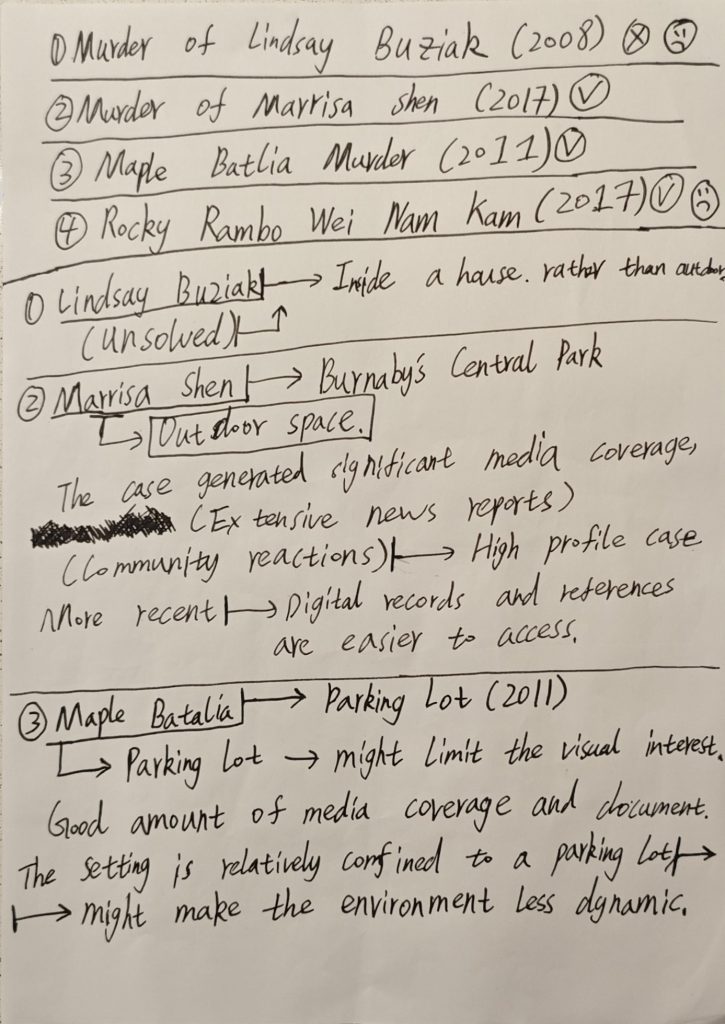 ① Murder of Lindsay Buziak (2008) ⓧ ☹
② Murder of Marrisa Shen (2017) ✓
③ Maple Batlia Murder (2011) ✓
④ Rocky Rambo Wei Nam Kam (2017) ✓ ☹
① Lindsay Buziak → Inside a house. rather than outdoor
(Unsolved) ↑
② Marrisa Shen → Burnaby's Central Park
→ Outdoor space.
The case generated significant media coverage,
(Extensive news reports)
(Community reactions) → High profile case
More recent → Digital records and references
are easier to access.
③ Maple Batalia → Parking Lot (2011)
→ Parking Lot → might limit the visual interest.
Good amount of media coverage and document.
The setting is relatively confined to a parking lot →
→ might make the environment less dynamic.